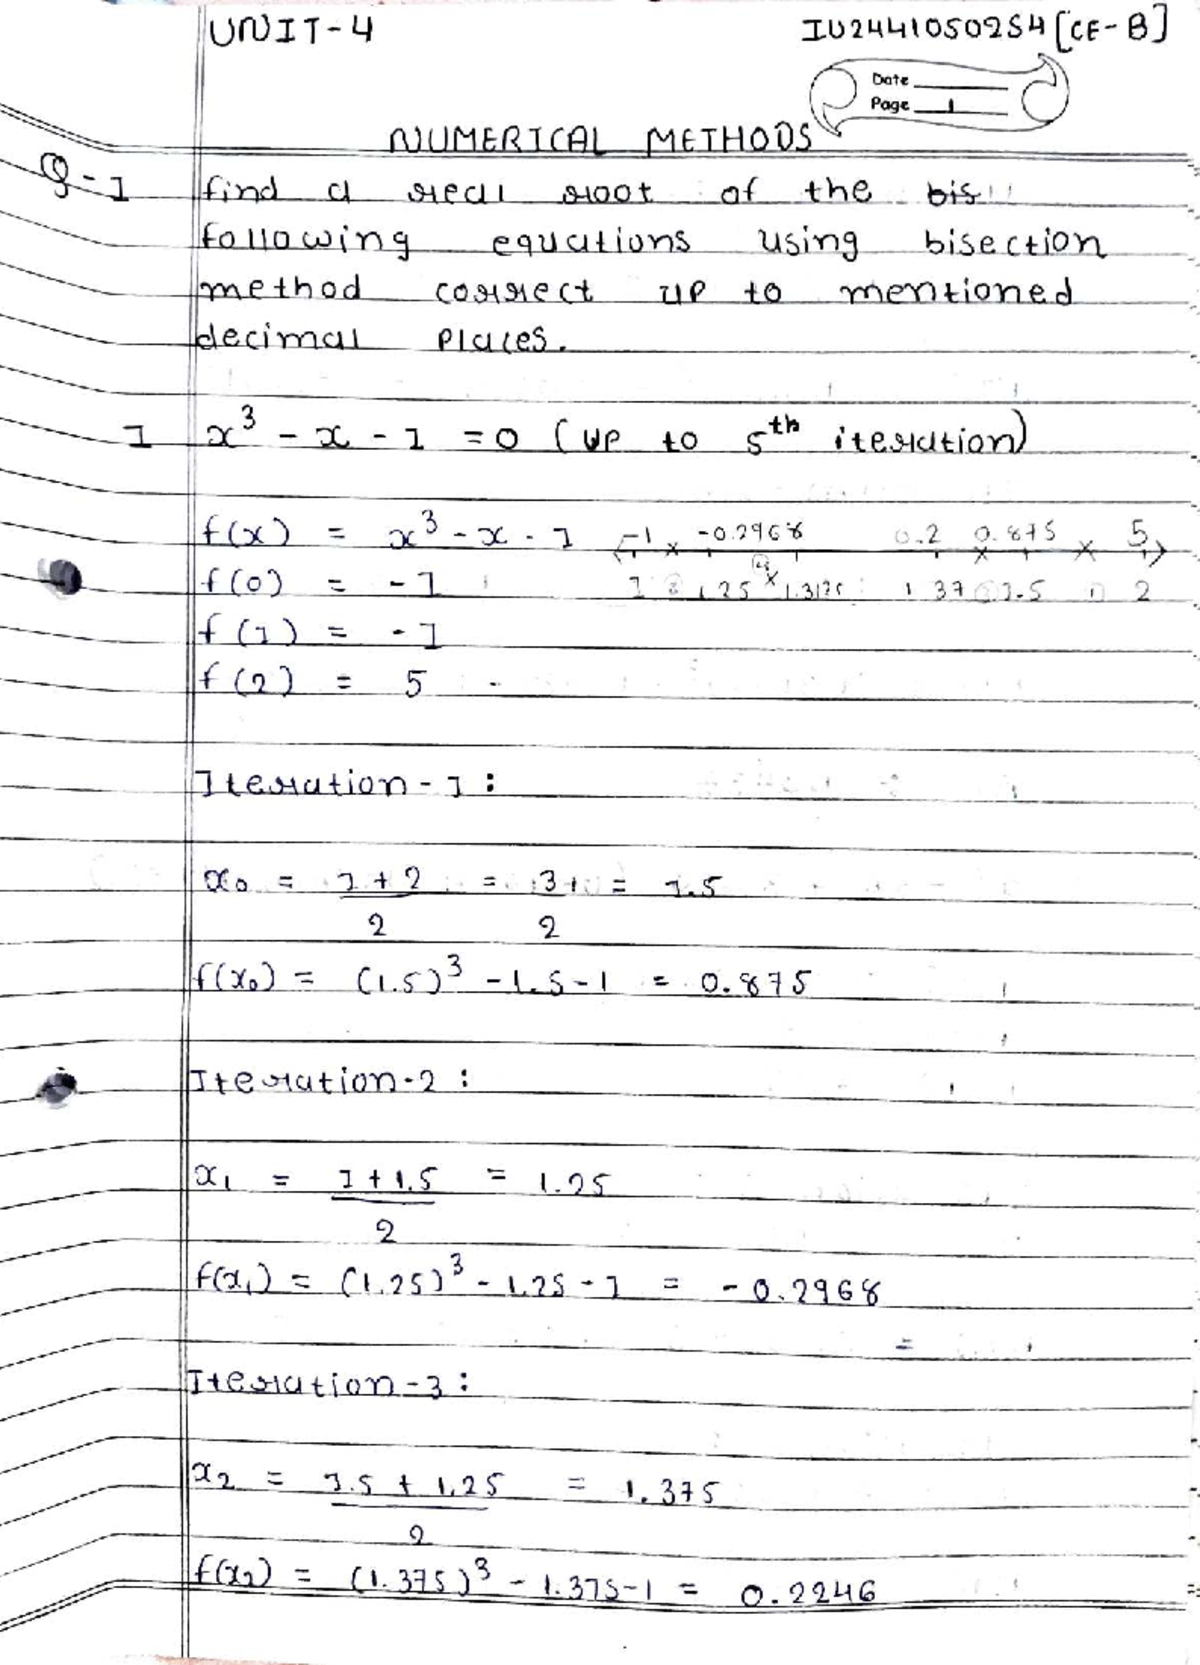 UNIT-4
IU2441050254 [CE-B]
Date
Page 1
NUMERICAL METHODS
Q-1 find a real root of the bis
following equations using bisection
method correct up to mentioned
decimal places.
1 x³ - x - 1 = 0 (up to 5th iteration)
f(x) = x³ - x - 1
-1 -0.2968 0.2 0.875 5
1 1.25 1.3125 1.37 1.5 2
f(0) = -1
f(1) = -1
f(2) = 5
Iteration-1 :
x₀ = 1+2/2 = 3/2 = 1.5
f(x₀) = (1.5)³ - 1.5 - 1 = 0.875
Iteration-2 :
x₁ = 1+1.5/2 = 1.25
f(x₁) = (1.25)³ - 1.25 - 1 = -0.2968
Iteration-3 :
x₂ = 1.5 + 1.25/2 = 1.375
f(x₂) = (1.375)³ - 1.375 - 1 = 0.2246